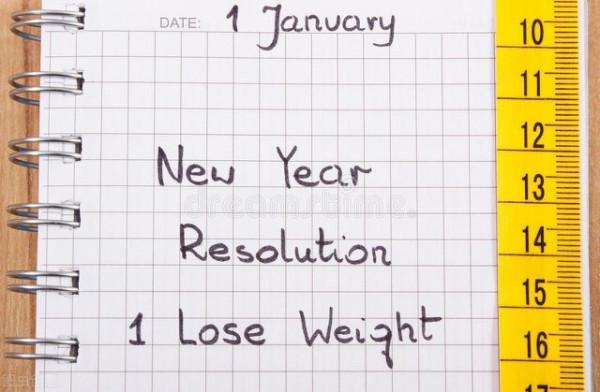 DATE: 1 January
New Year
Resolution
1 Lose Weight
10
11
12
13
14
15
16
17
dreamstime.